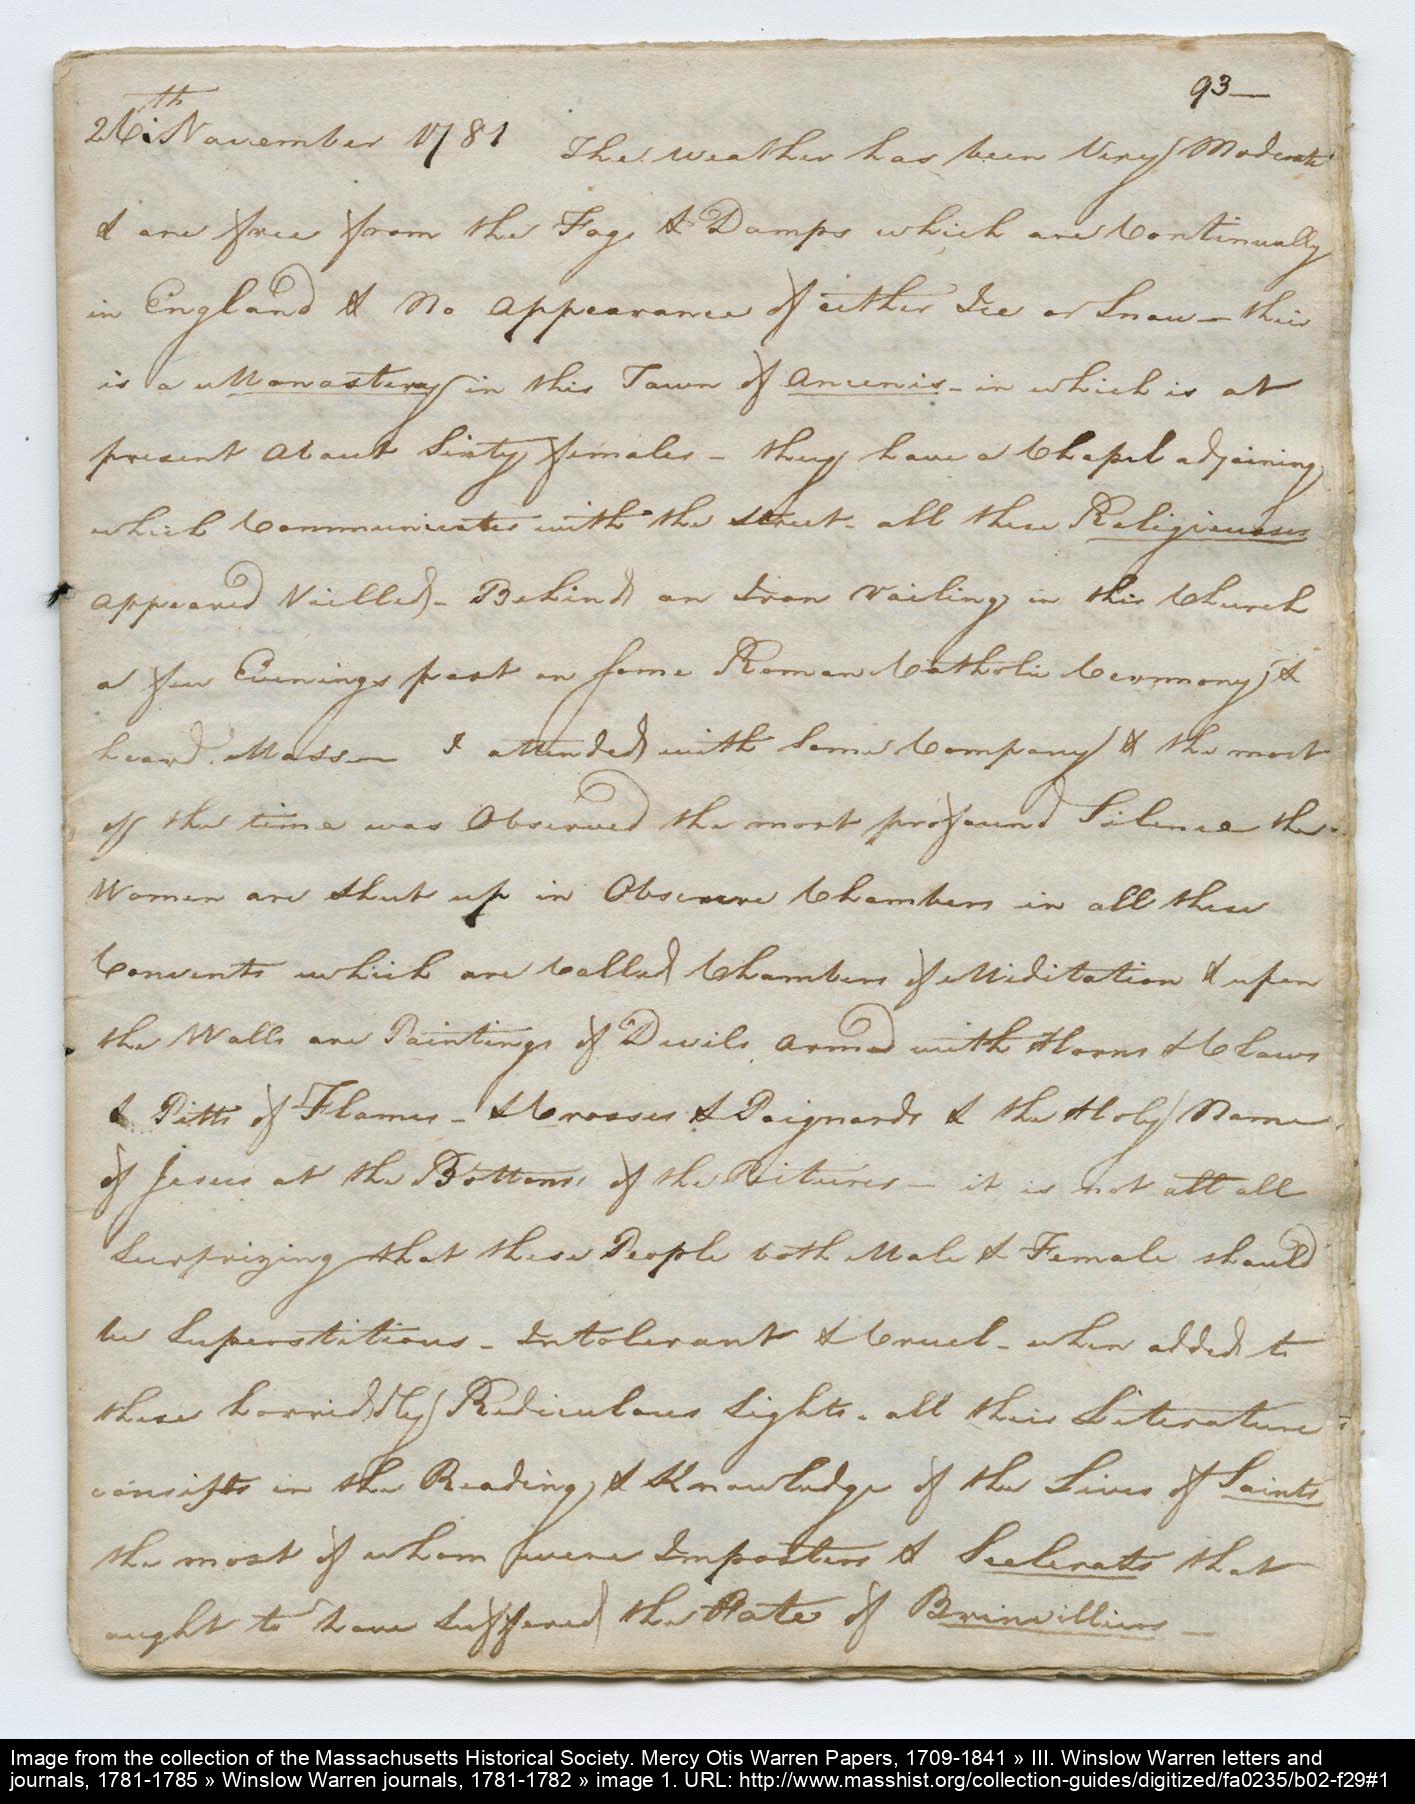 93—
26th November 1781 The weather has been Very Moderate
& are free from the Fogs & Damps which are Continually
in England & No appearance of either Ice or Snow — their
is a Monastery in this Town of Ancenis - in which is at
present about Sixty females - they have a Chapel adjoining
which Communicates with the Street - all these Religieuses
appeared Veilled - Behind an Iron railing in this Church
a few Evenings past on some Roman Catholic Cermony, &
heard Mass — I attended with some Company & the most
off the time was Observed the most profound Silence the
Women are shut up in Obscure Chambers in all these
Convents which are Called Chambers of Meditation & upon
the Walls are Paintings of Devils armed with Horns & Claws
& Pitts of Flames - & Crosses & Poignards & the Holy Name
of Jesus at the Bottoms of the Pitures — it is not att all
Surprizing that these People both Male & Female should
be Superstitious - Intolerant & Cruel - when added to
these horriddly Rediculous Sights - all their Literature
consists in the Reading, & Knowledge of the Lives of Saints
the most of whom were Imposters & Scelerats that
ought to have Suffered the Fate of Brinvilliers —
Image from the collection of the Massachusetts Historical Society. Mercy Otis Warren Papers, 1709-1841 » III. Winslow Warren letters and
journals, 1781-1785 » Winslow Warren journals, 1781-1782 » image 1. URL: http://www.masshist.org/collection-guides/digitized/fa0235/b02-f29#1